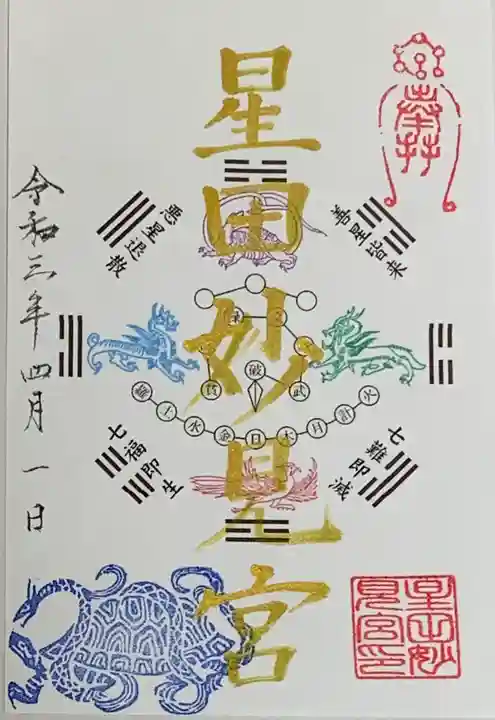 奉拝
星田妙見宮
善星皆来
悪星退散
七難即滅
七福即生
破
武
貪
羅土水金日木月計火
令和三年四月一日
星田妙
見宮印